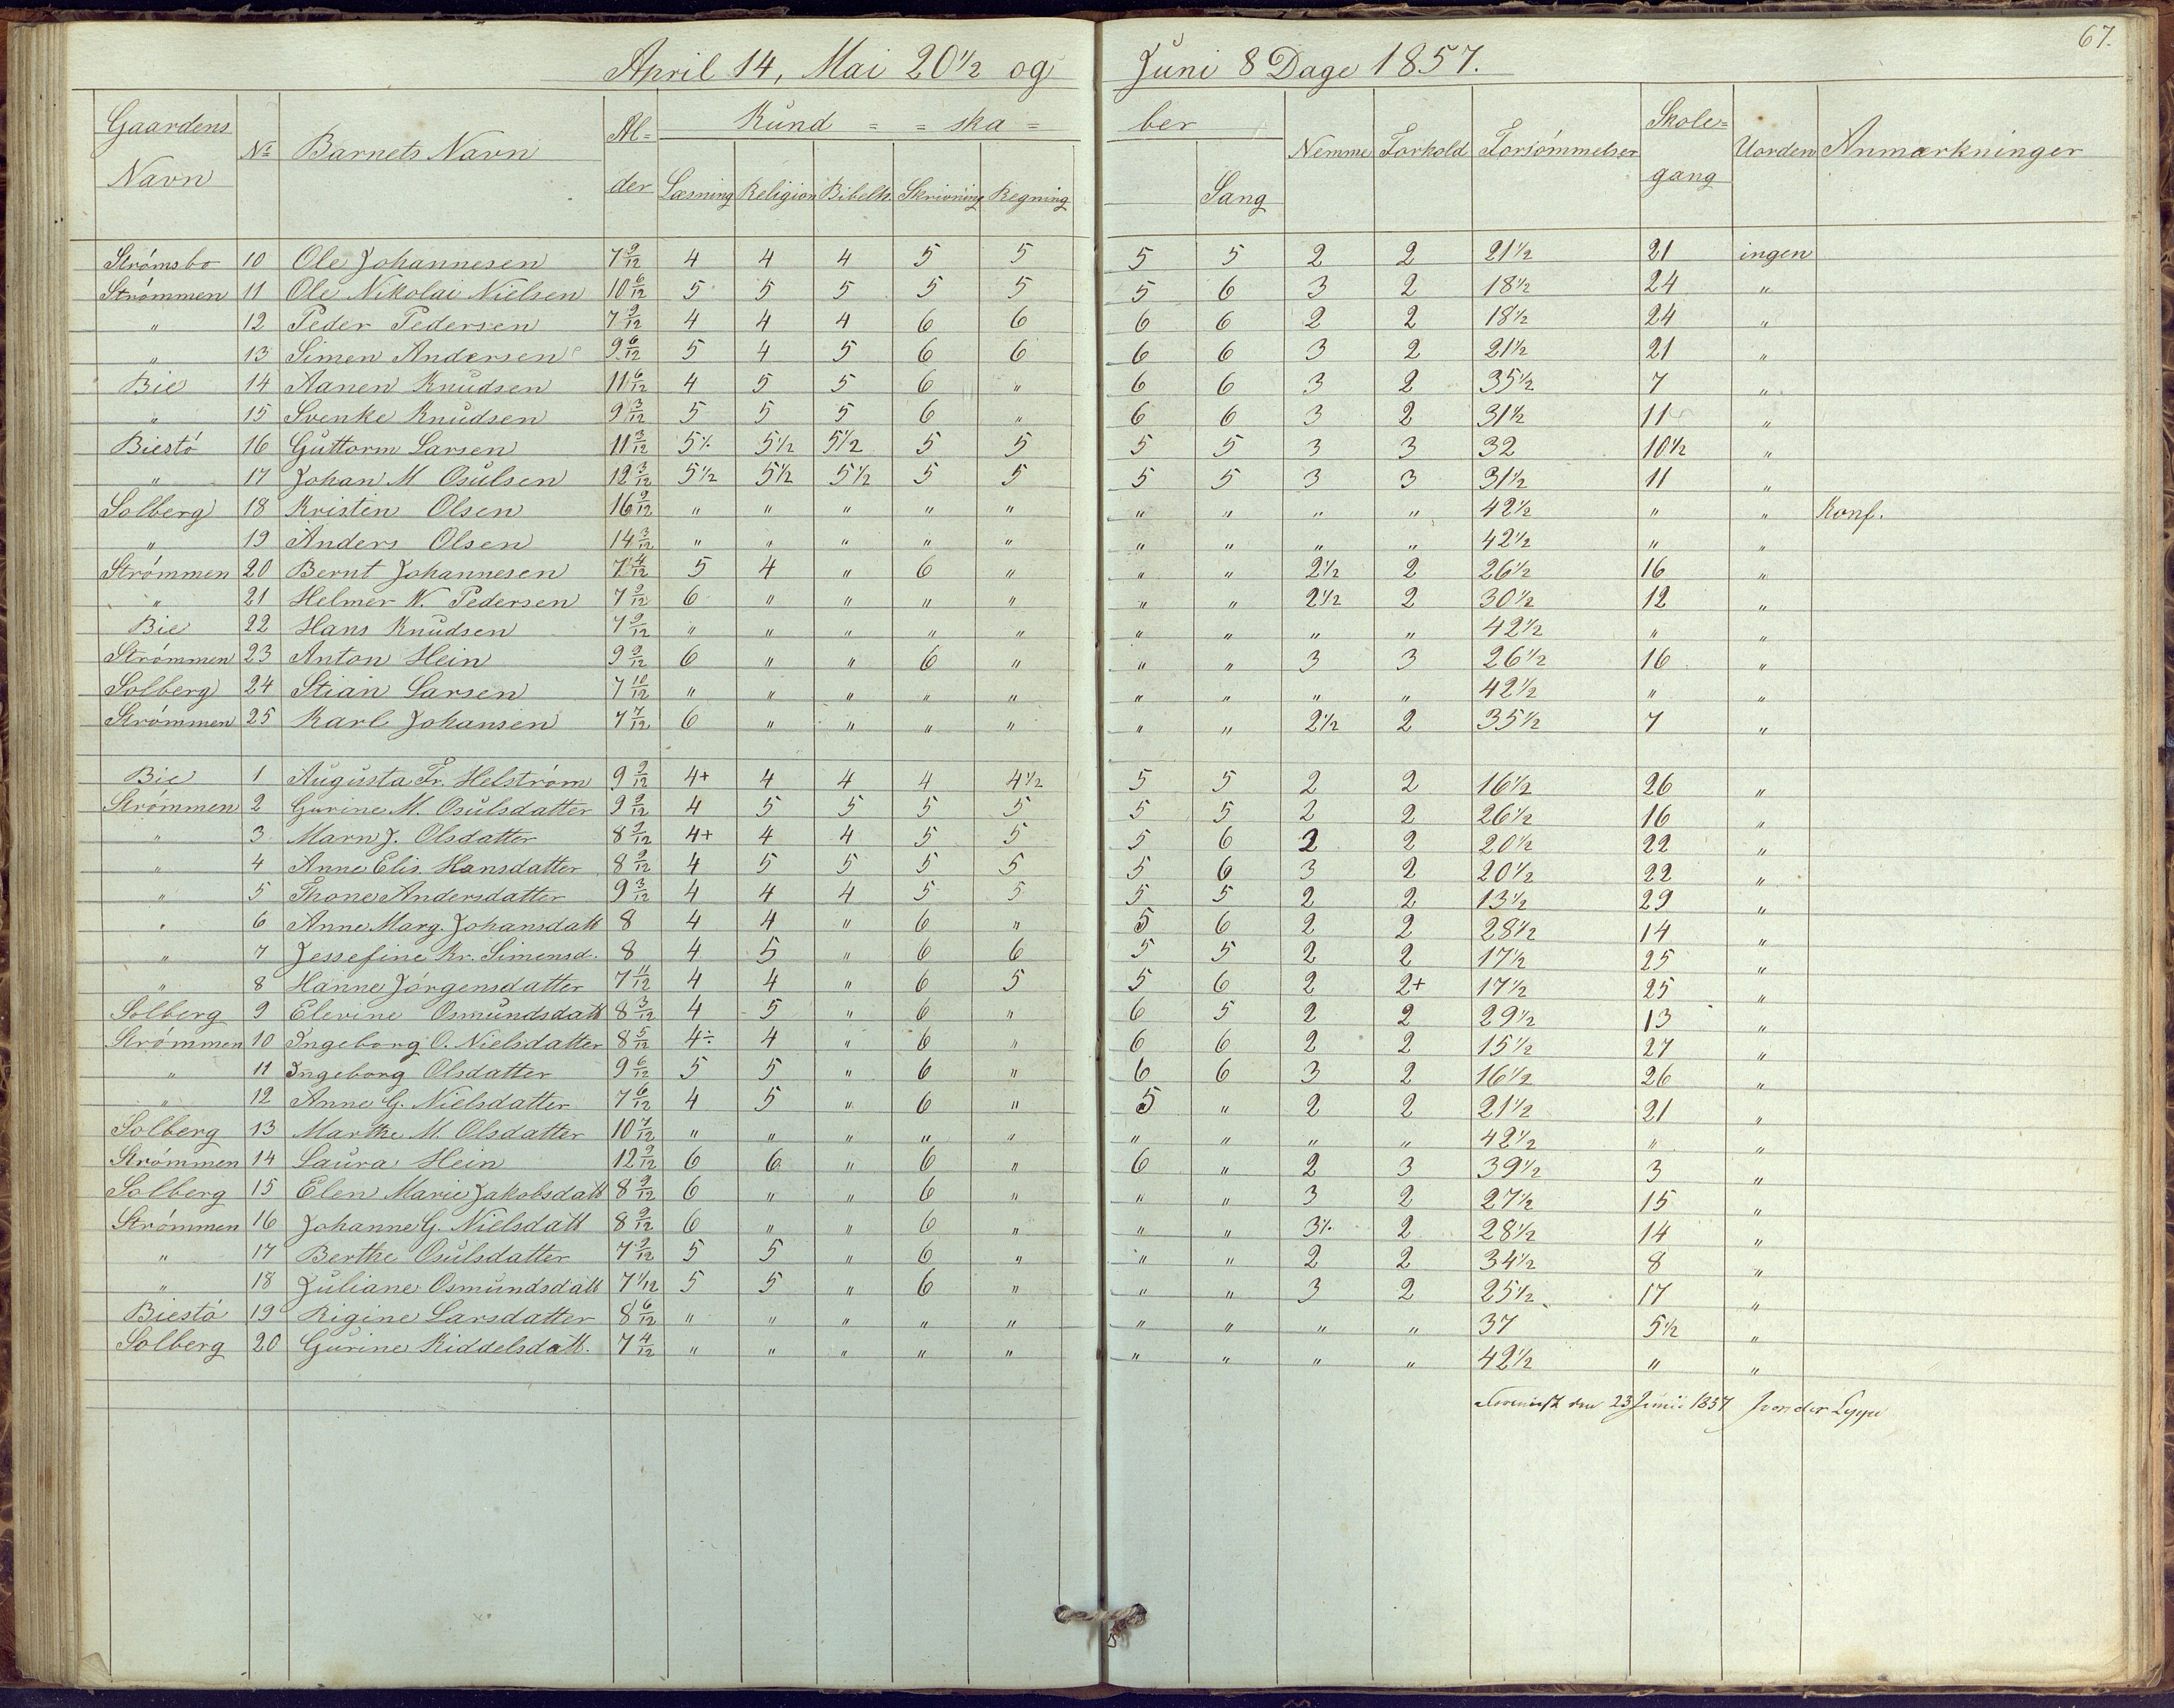 67.
April 14, Mai 20 1/2 og Juni 8 Dage 1857.
Gaardens Navn | No | Barnets Navn | Al=der | Kund = = ska = ber | Nemme | Forhold | Forsömmelser | Skole=gang | Uorden | Anmærkninger
Læsning | Religion | Bibelh. | Skrivning | Regning | | Sang
Strömsbo 10 Ole Johannesen 7 9/12 4 4 4 5 5 5 5 2 2 21 1/2 21 ingen
Strömmen 11 Ole Nikolai Nielsen 10 6/12 5 5 5 5 5 5 6 3 2 18 1/2 24 "
" 12 Peder Pedersen 7 9/12 4 4 4 6 6 6 6 2 2 18 1/2 24 "
" 13 Simen Andersen 9 6/12 5 4 5 6 6 6 6 3 2 21 1/2 21 "
Bie 14 Aanen Knudsen 11 6/12 4 5 5 6 " 6 6 3 2 35 1/2 7 "
" 15 Svenke Knudsen 9 3/12 5 5 5 6 " 6 6 3 2 31 1/2 11 "
Biestö 16 Guttorm Larsen 11 3/12 5 1/. 5 1/2 5 1/2 5 5 5 5 3 3 32 10 1/2 "
" 17 Johan M Osulsen 12 3/12 5 1/2 5 1/2 5 1/2 5 5 5 5 3 3 31 1/2 11 "
Solberg 18 Kristen Olsen 16 9/12 " " " " " " " " " 42 1/2 " " Konf.
" 19 Anders Olsen 14 3/12 " " " " " " " " " 42 1/2 " "
Strömmen 20 Bernt Johannesen 7 4/12 5 4 " 6 " " " 2 1/2 2 26 1/2 16 "
" 21 Helmer N. Pedersen 7 9/12 6 " " " " " " 2 1/2 2 30 1/2 12 "
Bie 22 Hans Knudsen 7 9/12 " " " " " " " " " 42 1/2 " "
Strömmen 23 Anton Hein 9 9/12 6 " " 6 " " " 3 3 26 1/2 16 "
Solberg 24 Stian Larsen 7 10/12 " " " " " " " " " 42 1/2 " "
Strömmen 25 Karl Johansen 7 7/12 6 " " " " " " 2 1/2 2 35 1/2 7 "
Bie 1 Augusta Fr. Helström 9 9/12 4+ 4 4 4 4 1/2 5 5 2 2 16 1/2 26 "
Strömmen 2 Gurine M. Osulsdatter 9 9/12 4 5 5 5 5 5 5 2 2 26 1/2 16 "
" 3 Marn J. Olsdatter 8 9/12 4+ 4 4 5 5 5 6 2 2 20 1/2 22 "
" 4 Anne Elis. Hansdatter 8 9/12 4 5 5 5 5 5 6 3 2 20 1/2 22 "
" 5 Thone Andersdatter 9 3/12 4 4 4 5 5 5 5 2 2 13 1/2 29 "
" 6 Anne Marg. Johansdatt 8 4 4 " 6 " 5 6 2 2 28 1/2 14 "
" 7 Jessefine Kr. Simensd. 8 4 5 " 6 6 5 5 2 2 17 1/2 25 "
" 8 Hanne Jörgensdatter 7 11/12 4 4 " 6 5 5 6 2 2+ 17 1/2 25 "
Solberg 9 Elevine Osmundsdatt 8 3/12 4 5 " 6 " 6 5 2 2 29 1/2 13 "
Strömmen 10 Ingeborg O. Nielsdatter 8 5/12 4÷ 4 " 6 " 6 6 2 2 15 1/2 27 "
" 11 Ingeborg Olsdatter 9 6/12 5 5 " 6 " 6 6 3 2 16 1/2 26 "
" 12 Anne G. Nielsdatter 7 6/12 4 5 " 6 " 5 " 2 2 21 1/2 21 "
Solberg 13 Marthe M. Olsdatter 10 7/12 " " " " " " " " " 42 1/2 " "
Strömmen 14 Laura Hein 12 9/12 6 6 " 6 " 6 " 2 3 39 1/2 3 "
Solberg 15 Elen Marie Jakobsdatt 8 9/12 6 " " 6 " " " 3 2 27 1/2 15 "
Strömmen 16 Johanne G. Nielsdatt 8 9/12 6 " " 6 " " " 3 1/. 2 28 1/2 14 "
" 17 Berthe Osulsdatter 7 9/12 5 5 " 6 " " " 2 2 34 1/2 8 "
" 18 Juliane Osmundsdatt 7 1/12 5 5 " 6 " " " 3 2 25 1/2 17 "
Biestö 19 Rigine Larsdatter 8 6/12 " " " " " " " " " 37 5 1/2 "
Solberg 20 Gurine Kiddelsdatt. 7 4/12 " " " " " " " " " 42 1/2 " "
den 23 Junii 1857